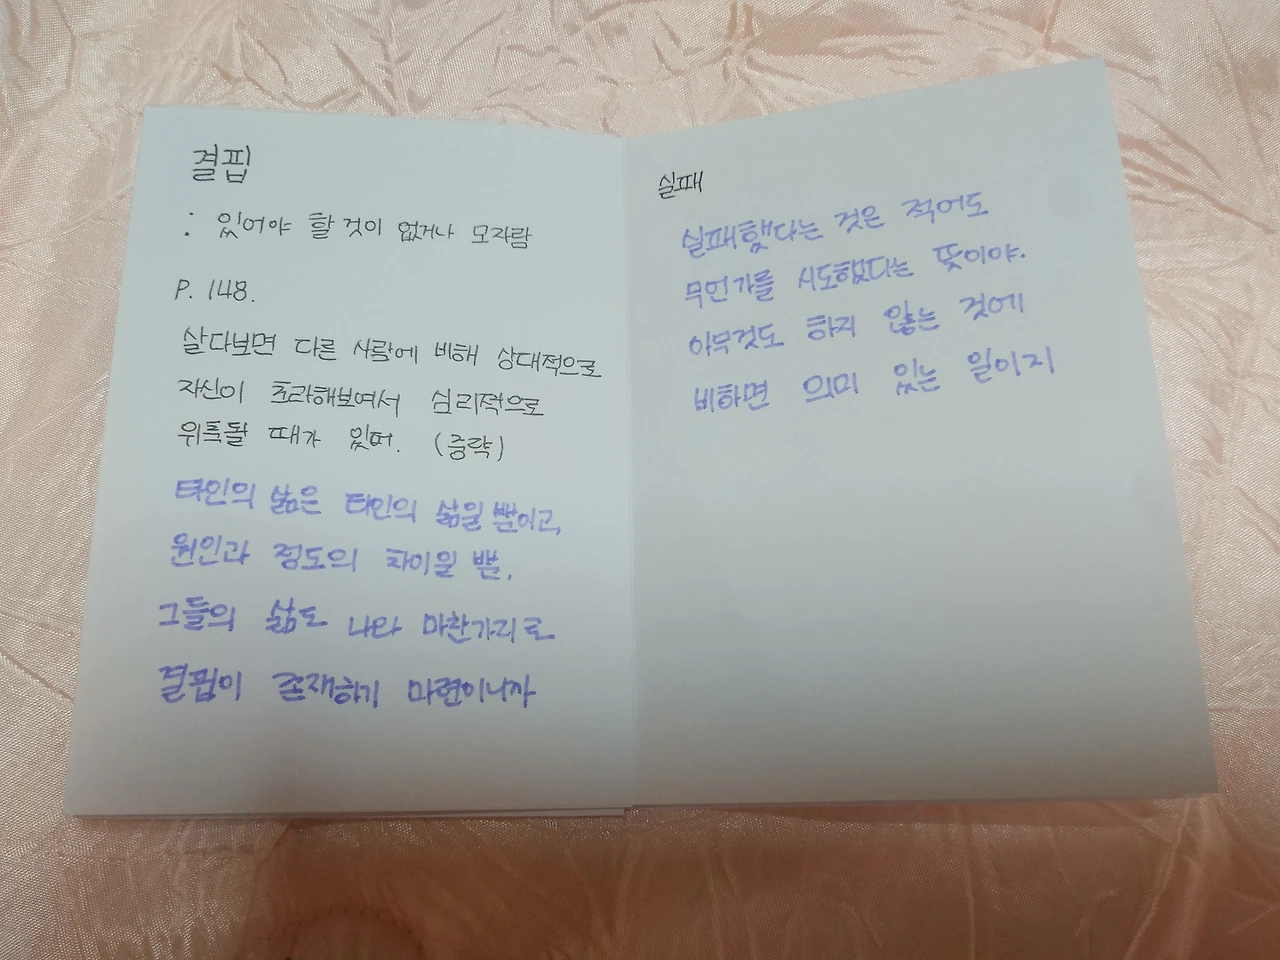 결핍
: 있어야 할 것이 없거나 모자람
P. 148.
살다보면 다른 사람에 비해 상대적으로
자신이 초라해보여서 심리적으로
위축될 때가 있어. (중략)
타인의 삶은 타인의 삶일 뿐이고,
원인과 정도의 차이일 뿐,
그들의 삶도 나와 마찬가지로
결핍이 존재하기 마련이니까
실패
실패했다는 것은 적어도
무언가를 시도했다는 뜻이야.
아무것도 하지 않는 것에
비하면 의미 있는 일이지